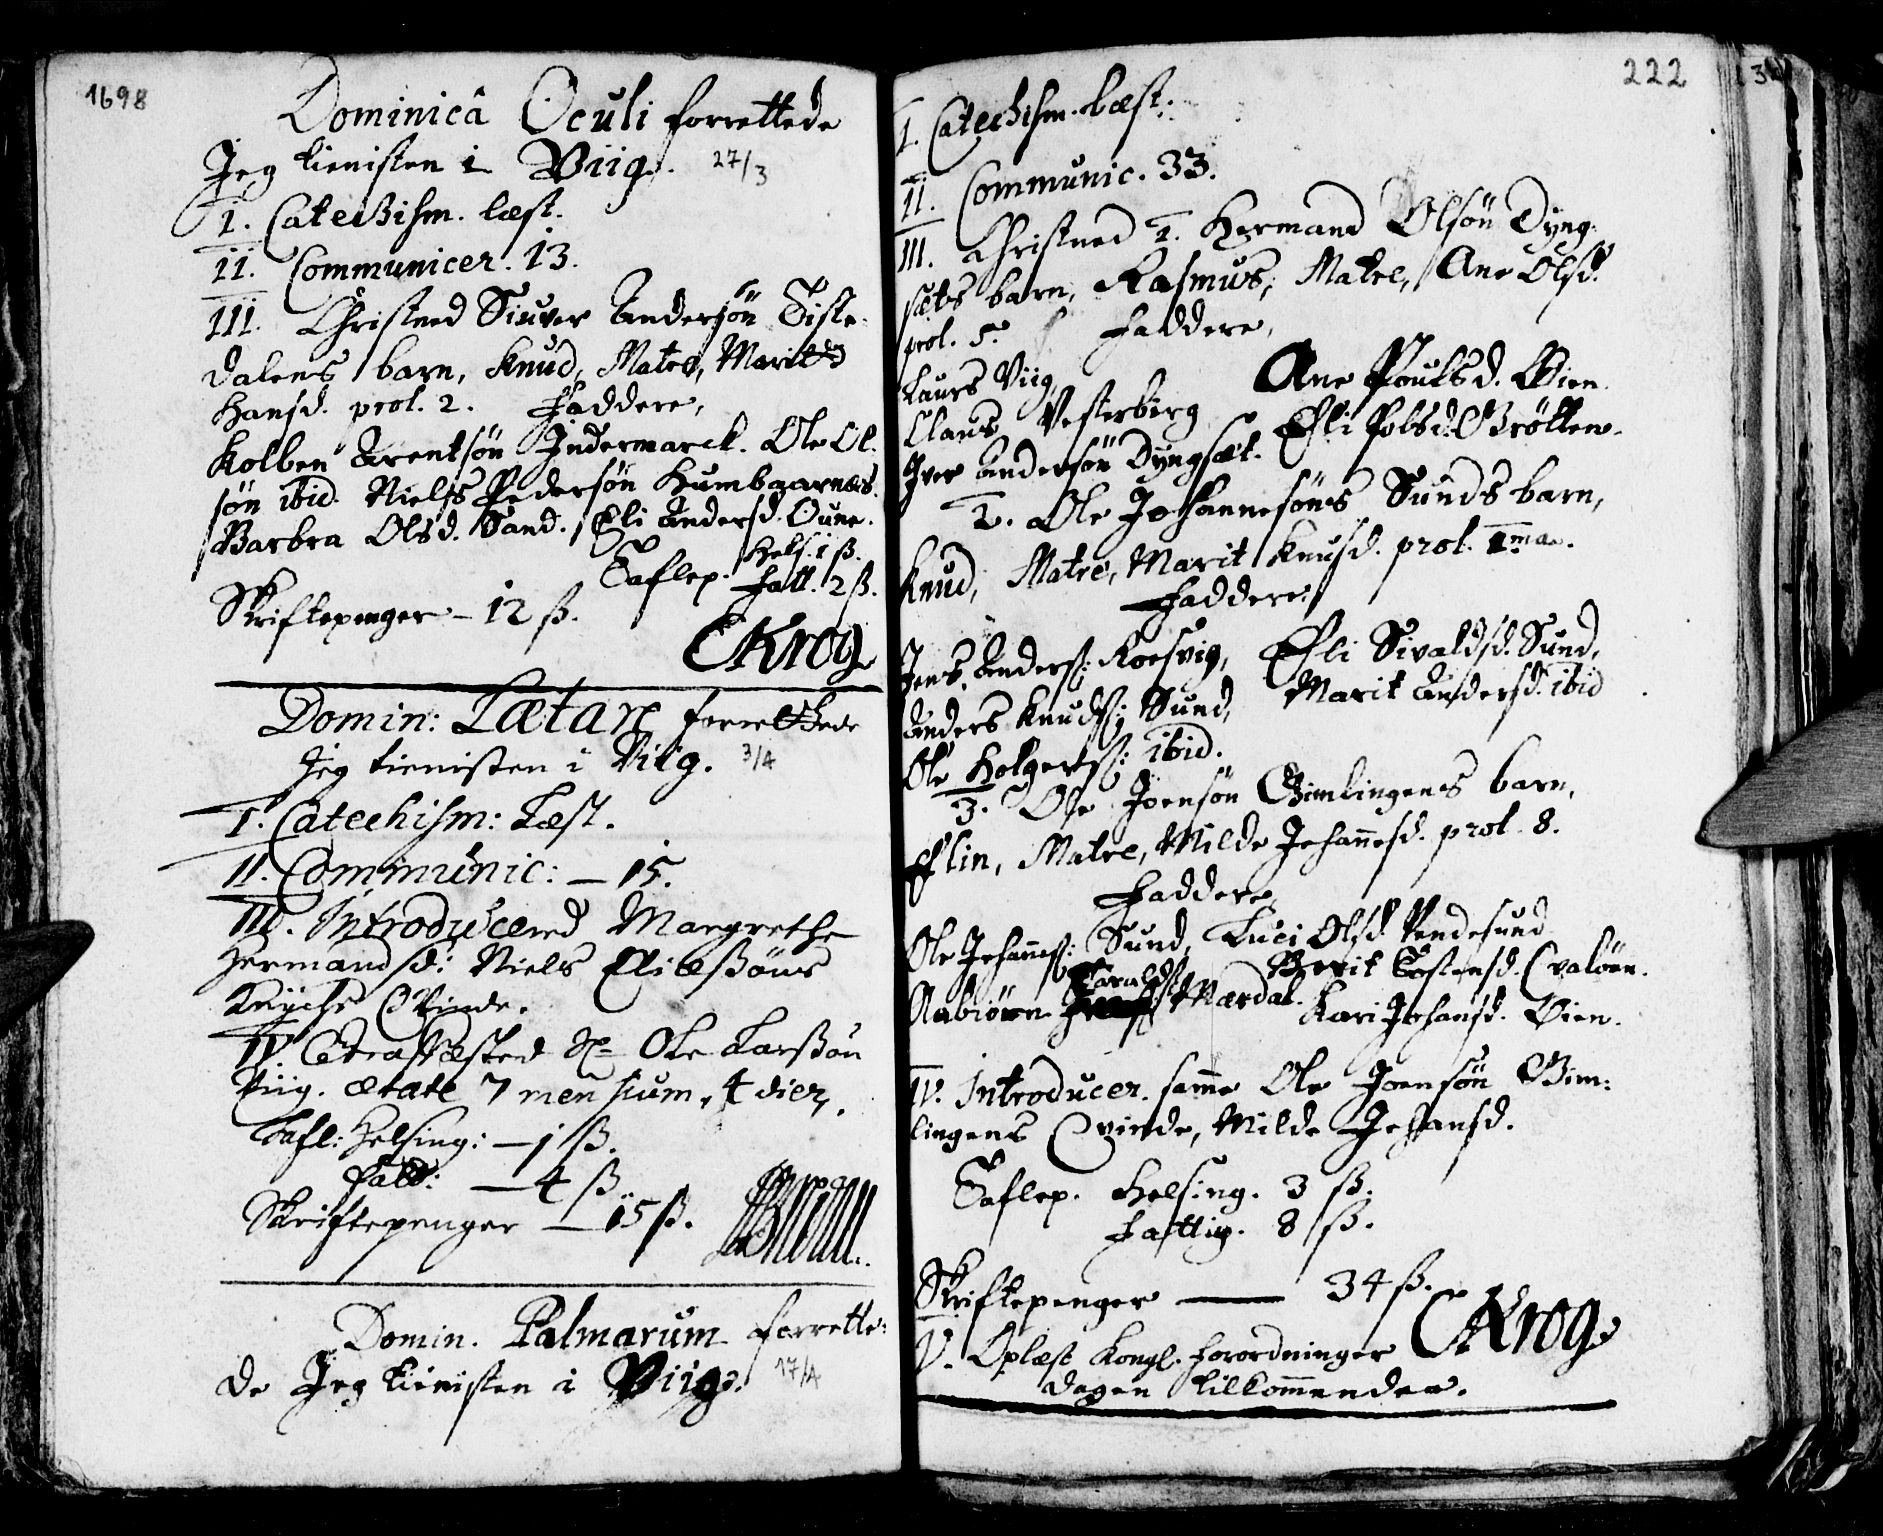 1698
Dominicâ Oculi forrettede
Jeg tienisten i Viig. 27/3
I. Catechism. læst.
II. Communicer. 13.
III. Christned Siuver Andersøn Siste
dalens barn, Knud, Matre, Marit
Hansd. prol. 2. Faddere,
Kolben Arentsøn Indermarck. Ole Ol
søn ibid. Niels Pedersøn Humbgarnæs.
Barbra Olsd. Sand. Eli Andersd. Oune.
Taflep. Hels. 1 ß.
Fatt. 2 ß.
Skriftepenger – 12 ß.
CKrog
Domin: Lætare forrettede
Jeg tienisten i Viig. 3/4
I. Catechism: Læst.
II. Communic: – 15.
III. Introducered Margrethe
Hermandsd: Niels Eliæßøns
Qvinde.
IV. Ole Larßøn
Viig. ætate 7 mensium, 4 dier,.
Tafl: Helsing: – 1 ß.
Fatt: – 4 ß
Skriftepenger – 15 ß.
Domin. Palmarum forrette:
de Jeg tienisten i Viig. 17/4
222
I. Catechism. læst.
II. Communic. 33.
III. Christned 1. Hermand Olsøn Dyng
sæts barn, Rasmus, Matre, Ane Olsd.
prol. 5. Faddere,
Laurs Viig, Ane Poulsd. Øien.
Claus Vesterberg Eli Jobsd. Brøtten.
Iver Andersøn Dyngsæt.
2. Ole Johannesøns Sunds barn,
Knud, Matre, Marit Knusd. prol. 1ma.
Faddere.
Jens Anders: Roesvig, Eli Sivaldsd. Sund,
Anders Knuds: Sund, Marit Andersd. ibid
Ole Holgers: ibid.
3. Ole Joensøn Gimlingens barn,
Elin, Matre, Milde Johannesd. prol. 8.
Faddere,
Ole Johannes: Sund, Luci Olsd. Vendesund
Aabiörn Haralds Mærdal. Berit Tostensd. Qvaløen.
Kari Johansd. Øien.
IV. Introducer. samme Ole Joensøn Gim:
lingens Qvinde, Milde Johansd.
Taflep. Helsing. 3 ß.
Fattig. 8 ß.
Skriftepenger — 34 ß.
CKrog
V. Oplæst Kongl. forordninger
dagen tilkommendes.